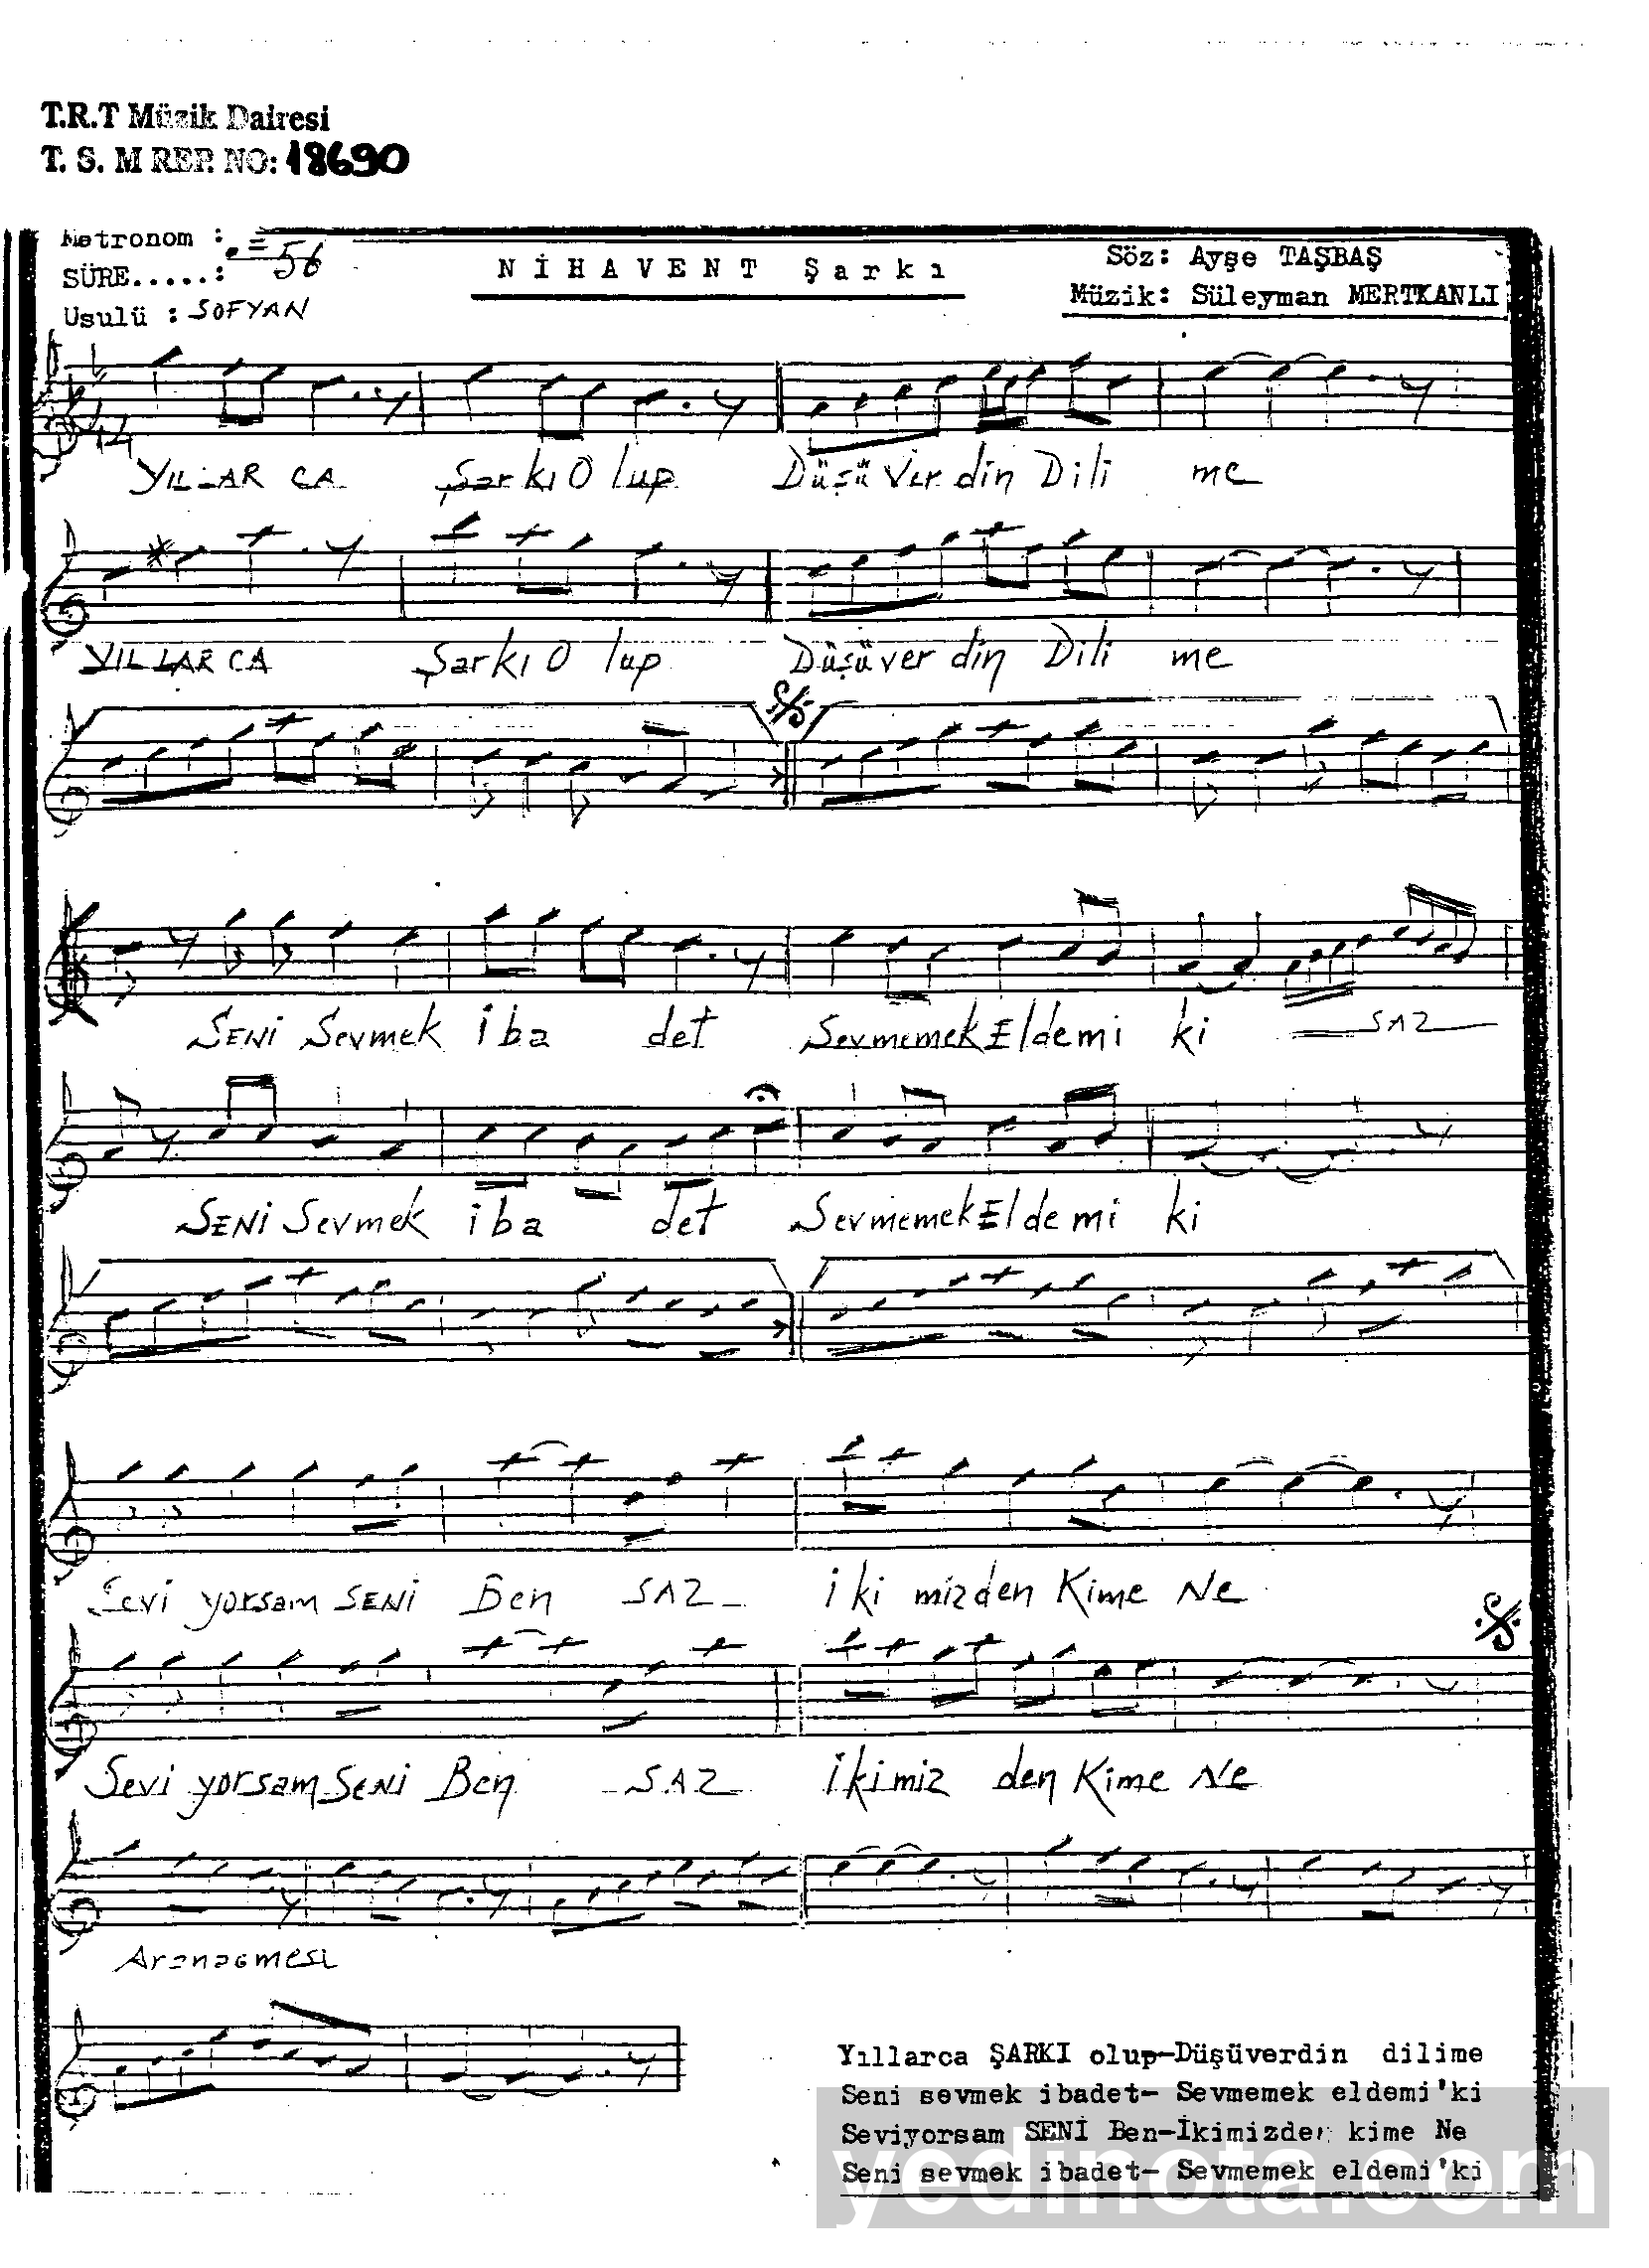 T.R.T Müzik Dairesi
T. S. M REP. NO: 18690
Metronom : . = 56
SÜRE.....:
Usulü : SOFYAN
NİHAVENT Şarkı
Söz: Ayşe TAŞBAŞ
Müzik: Süleyman MERTKANLI
YILLAR CA Şarkı O lup Düşü Ver din Dili me
YILLAR CA Şarkı O lup Düşüver din Dili me
SENi Sevmek iba det Sevmemek Eldemi ki SAZ
SENi Sevmek iba det Sevmemek Eldemi ki
Sevi yorsam SENi Ben SAZ iki mizden Kime Ne
Sevi yorsam SENi Ben SAZ ikimiz den Kime Ne
Aranağmesi
Yıllarca ŞARKI olup-Düşüverdin dilime
Seni sevmek ibadet- Sevmemek eldemi'ki
Seviyorsam SENİ Ben-İkimizden kime Ne
Seni sevmek ibadet- Sevmemek eldemi'ki
yedinota.com